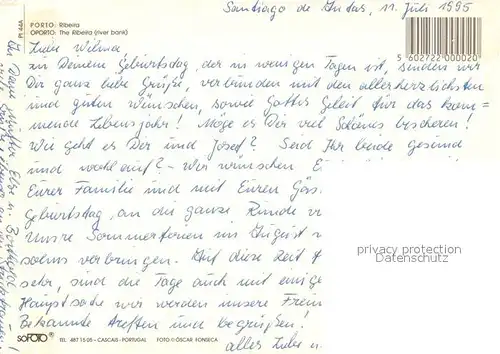 Santiago de , 11. Juli 1995
PORTO: Ribeira
OPORTO: The Ribeira (river bank)
PI 44A
5 602722 000020
Liebe Wilma,
zu Deinem Geburtstag, der in wenigen Tagen ist, senden wir
Dir ganz liebe Grüße, verbunden mit den allerherzlichsten
und guten Wünschen, sowie Gottes Geleit für das kom=
mende Lebensjahr! Möge es Dir viel Schönes bescheren!
Wie geht es Dir und Josef? Seid Ihr beide gesund
und wohlauf? - Wir wünschen E
Eurer Familie und mit Euren Gäs
Geburtstag, an die ganze Runde v
Unsre Sommerferien im August
verbringen. Auf diese Zeit f
sehr, sind die Tage auch mit einige
Hauptsache wir werden unsere Freun
Bekannte treffen und begrüßen!
alles Liebe u
privacy protection
AnsichtskartenCenter.de
soFOTO TEL. 487 15 05 - CASCAIS - PORTUGAL FOTO © ÓSCAR FONSECA